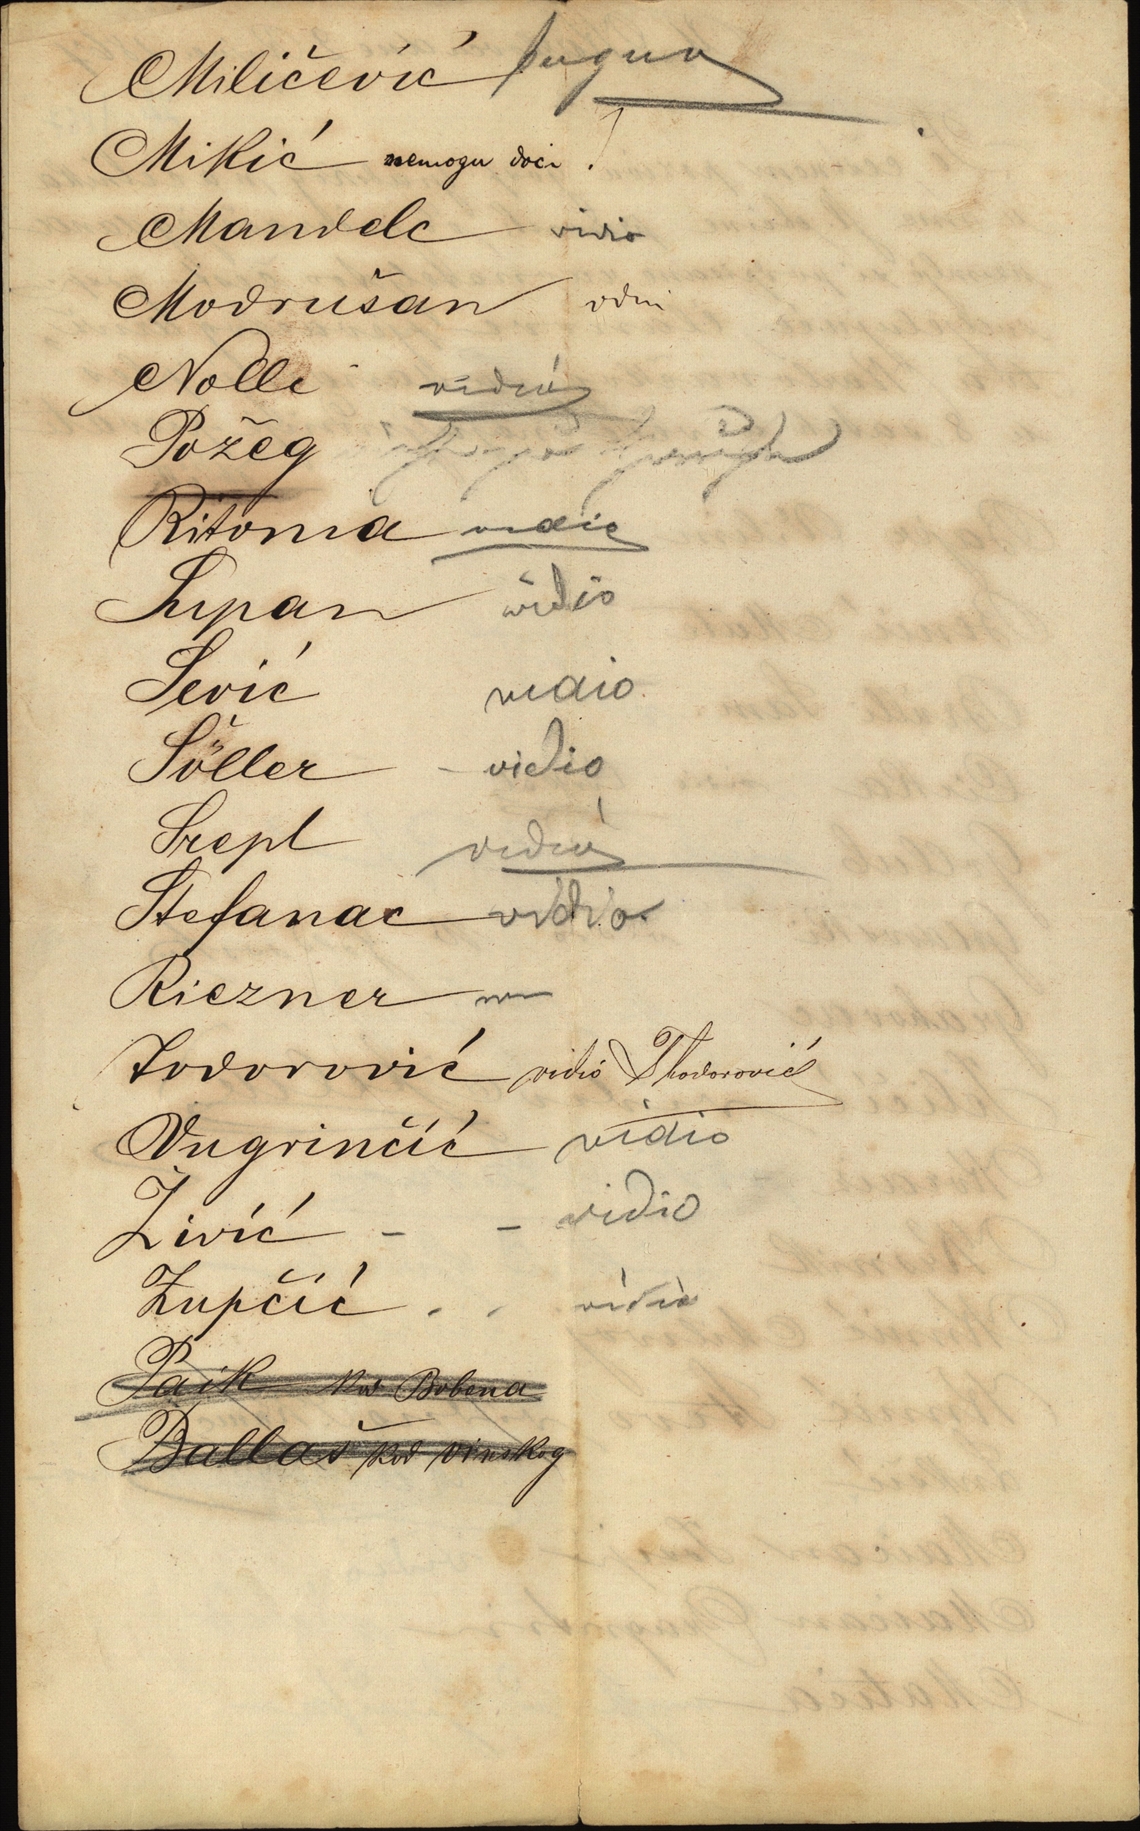 Miličević
Mikić nemogu doći !
Mandelc vidio
Modrušan
Nolle vidio
Požeg
Ritonia vidio
Supan vidio
Sević vidio
Šöller - vidio
Srepl vidio
Stefanac vidio
Riezner
Todorović vidio Theodorović
Vugrinčić vidio
Živić - - vidio
Zupčić . . vidio
Paik kod Bobena
Ballaš kod vinskog